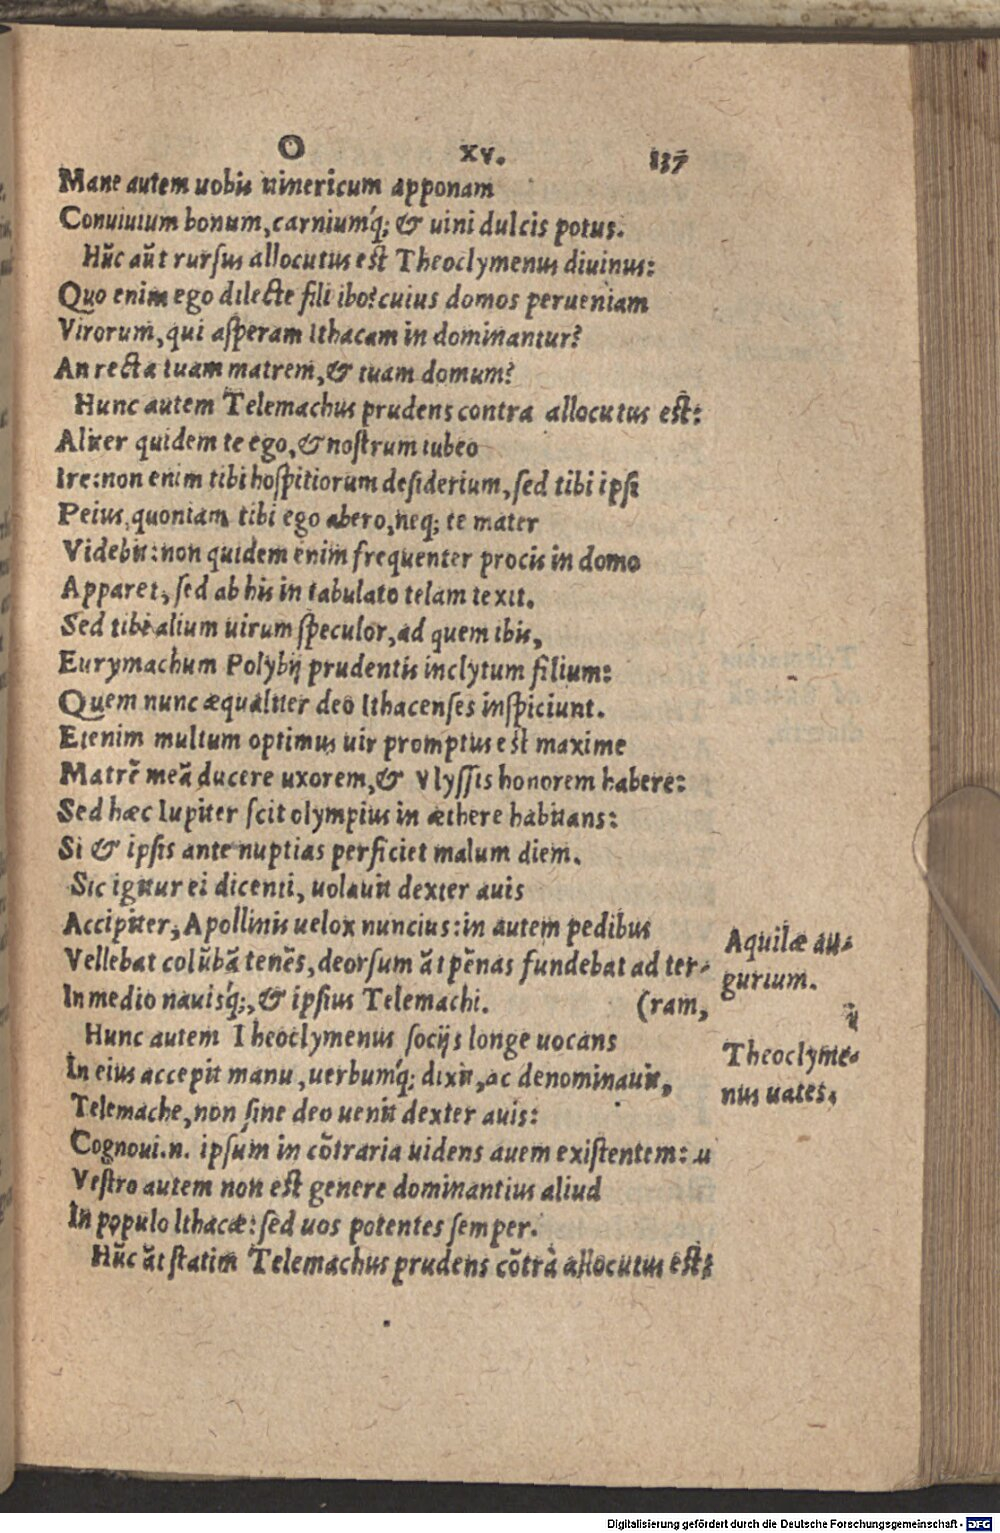 O XV. 137
Mane autem uobis uinericum apponam
Conuiuium bonum, carniumq́; & uini dulcis potus.
Hũc aũt rursus allocutus est Theoclymenus diuinus:
Quo enim ego dilecte fili ibo? cuius domos perueniam
Virorum, qui asperam Ithacam in dominantur?
An recta tuam matrem, & tuam domum?
Hunc autem Telemachus prudens contra allocutus est:
Aliter quidem te ego, & nostrum iubeo
Ire: non enim tibi hospitiorum desiderium, sed tibi ipsi
Peius, quoniam tibi ego abero, neq; te mater
Videbit: non quidem enim frequenter procis in domo
Apparet, sed ab his in tabulato telam texit.
Sed tibi alium uirum speculor, ad quem ibis,
Eurymachum Polybij prudentis inclytum filium:
Quem nunc æqualiter deo Ithacenses inspiciunt.
Etenim multum optimus uir promptus est maxime
Matrẽ meã ducere uxorem, & Vlyssis honorem habere:
Sed hæc Iupiter scit olympius in æthere habitans:
Si & ipsis ante nuptias perficiet malum diem.
Sic igitur ei dicenti, uolauit dexter auis
Accipiter, Apollinis uelox nuncius: in autem pedibus
Vellebat colũbã tenẽs, deorsum ãt pẽnas fundebat ad ter-
In medio nauisq́;, & ipsius Telemachi. (ram,
Hunc autem Theoclymenus socijs longe uocans
In eius accepit manu, uerbumq́; dixit, ac denominauit,
Telemache, non sine deo uenit dexter auis:
Cognoui .n. ipsum in cõtraria uidens auem existentem: u
Vestro autem non est genere dominantius aliud
In populo Ithacæ: sed uos potentes semper.
Hũc ãt statim Telemachus prudens cõtrà allocutus est:
Aquilæ au-
gurium.
Theoclyme-
nus uates.
Digitalisierung gefördert durch die Deutsche Forschungsgemeinschaft - DFG